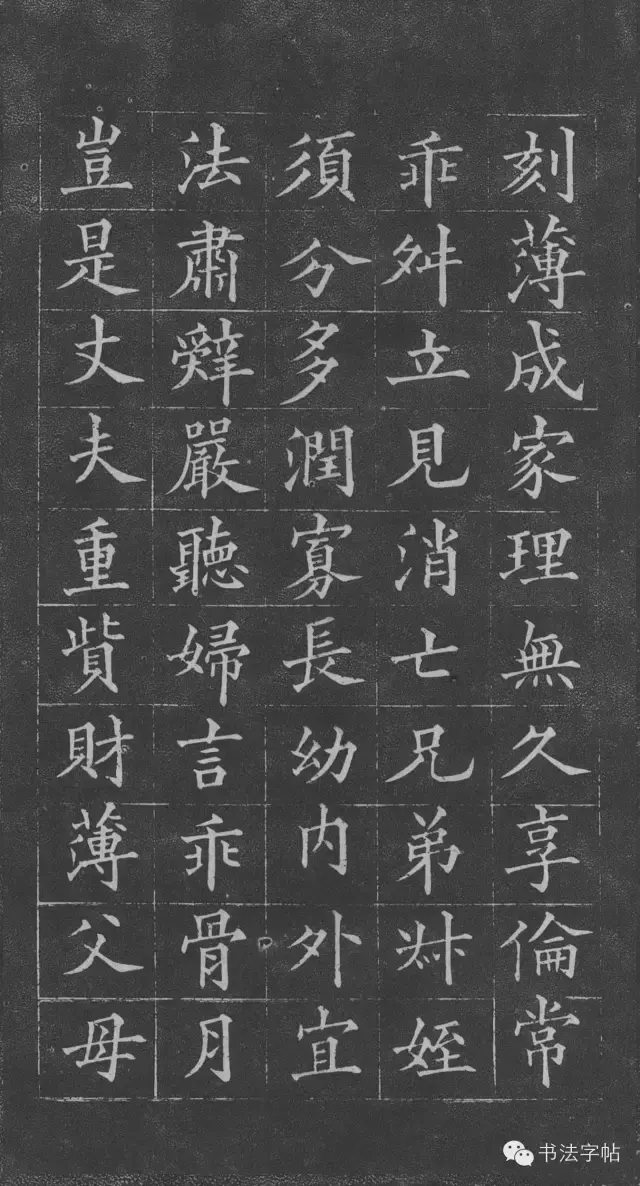 刻薄成家理無久享倫常
乖舛立見消亡兄弟叔姪
須分多潤寡長幼内外宜
法肅辤嚴聽婦言乖骨月
豈是丈夫重貲財薄父母
书法字帖